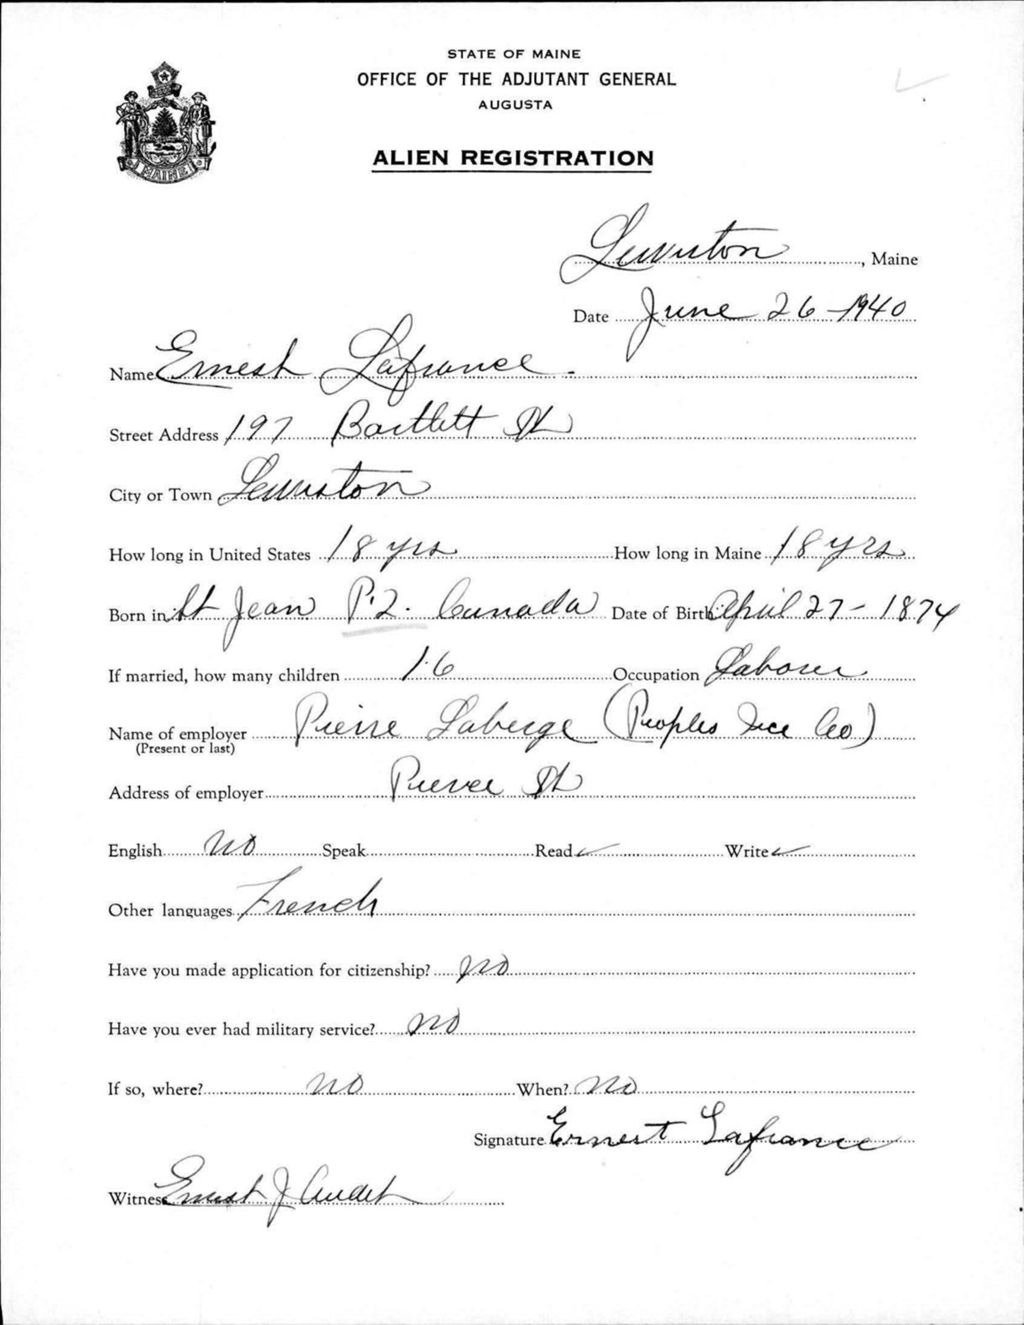 STATE OF MAINE
OFFICE OF THE ADJUTANT GENERAL
AUGUSTA
ALIEN REGISTRATION
MAINE
Lewiston, Maine
Date June 26-1940
Name Ernest Lafrance
Street Address 197 Bartlett St
City or Town Lewiston
How long in United States 18 yrs How long in Maine 18 yrs
Born in St Jean P.Q. Canada Date of Birth April 27-1874
If married, how many children 16 Occupation Laborer
Name of employer Pierre Laberge (Peoples Ice Co)
(Present or last)
Address of employer Pierce St
English No Speak Read ✓ Write ✓
Other languages French
Have you made application for citizenship? no
Have you ever had military service? no
If so, where? no When? no
Signature Ernest Lafrance
Witness Ernest J Audet